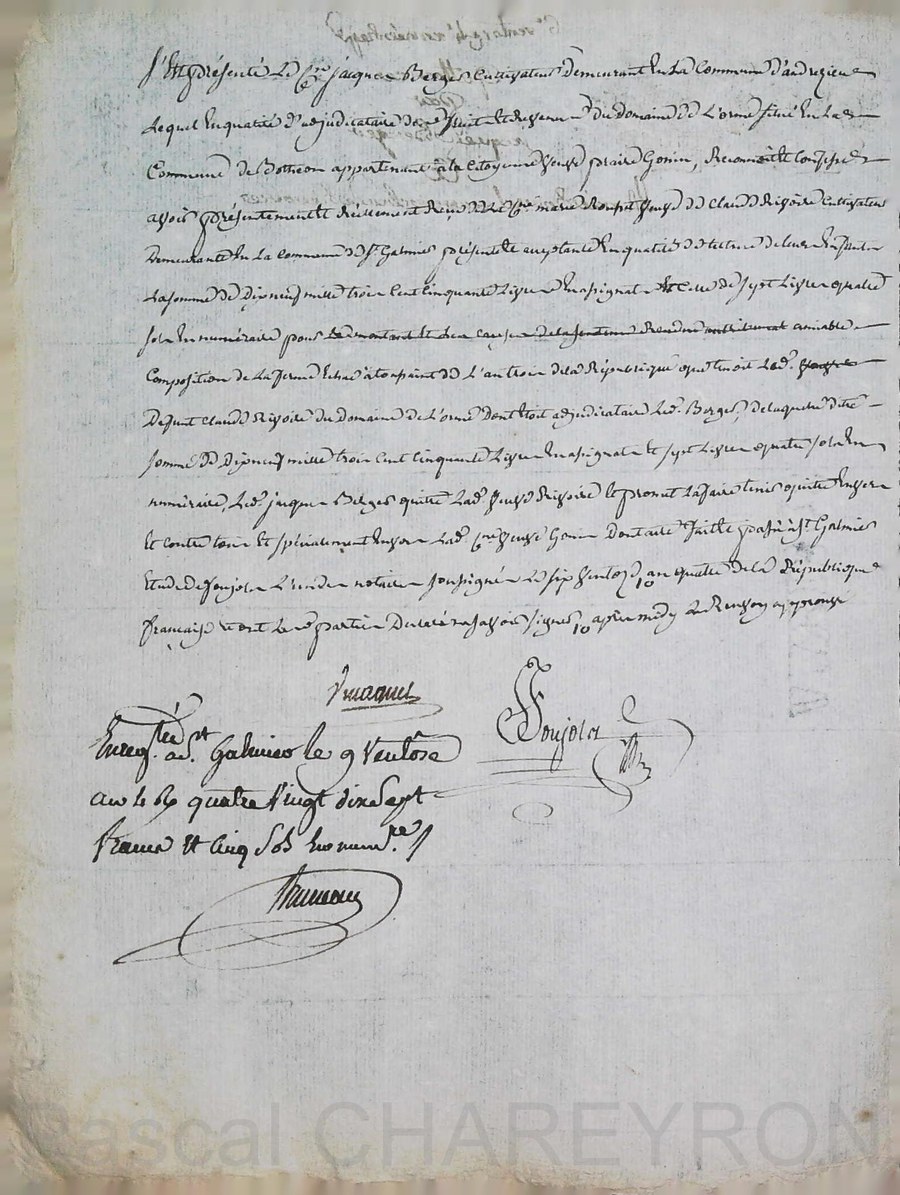 S'est présenté le Cen jacques Berges Cultivateur demeurant en la Commune d'andrezieu
Lequel en qualité d'adjudicataire des fruit et revenu du domaine de L'orme situé en la
Commune de Botheon appartenant à la Citoyenne veuve praire Gonin, Reconnoit et Confesse
avoir présentement et réellement Reçu de la Cne marie veuve de Claude Rigoire Cultivateur
Demeurante en la Commune de St Galmier présente et acceptante en qualité de tutrice de leur Enfant
La somme de dix neuf mille trois Cent Cinquante Livres En assignat et Celle de sept Livres quatre
sols En numéraire pour amiable
Composition de la ferme de L'an trois de la République que tenoit led.
Defunt Claude Rigoire du Domaine de L'orme dont étoit adjudicataire Led. Berges, de laquelle dite
somme de dix neuf mille trois Cent Cinquante Livres En assignat et sept Livres quatre sols En
numéraire, Led. jacques Berges quitte Lad. veuve Rigoire et promet La faire tenir quitte Envers
et contre tous et spécialement Envers Lad. Cne veuve Gonin Dont acte fait et passé à St Galmier
Etude de Soujol L'un des notaires soussigné Le six ventoze an quatre de la République
française et ont Les partie Déclaré ne savoir signer, après midy Le Renvoy approuvé
Soujol
Enregtré à St Galmier le 9 Ventôse
an 4 Rx quatre Vingt dix Sept
francs et Cinq Sols En numre
Pascal CHAREYRON